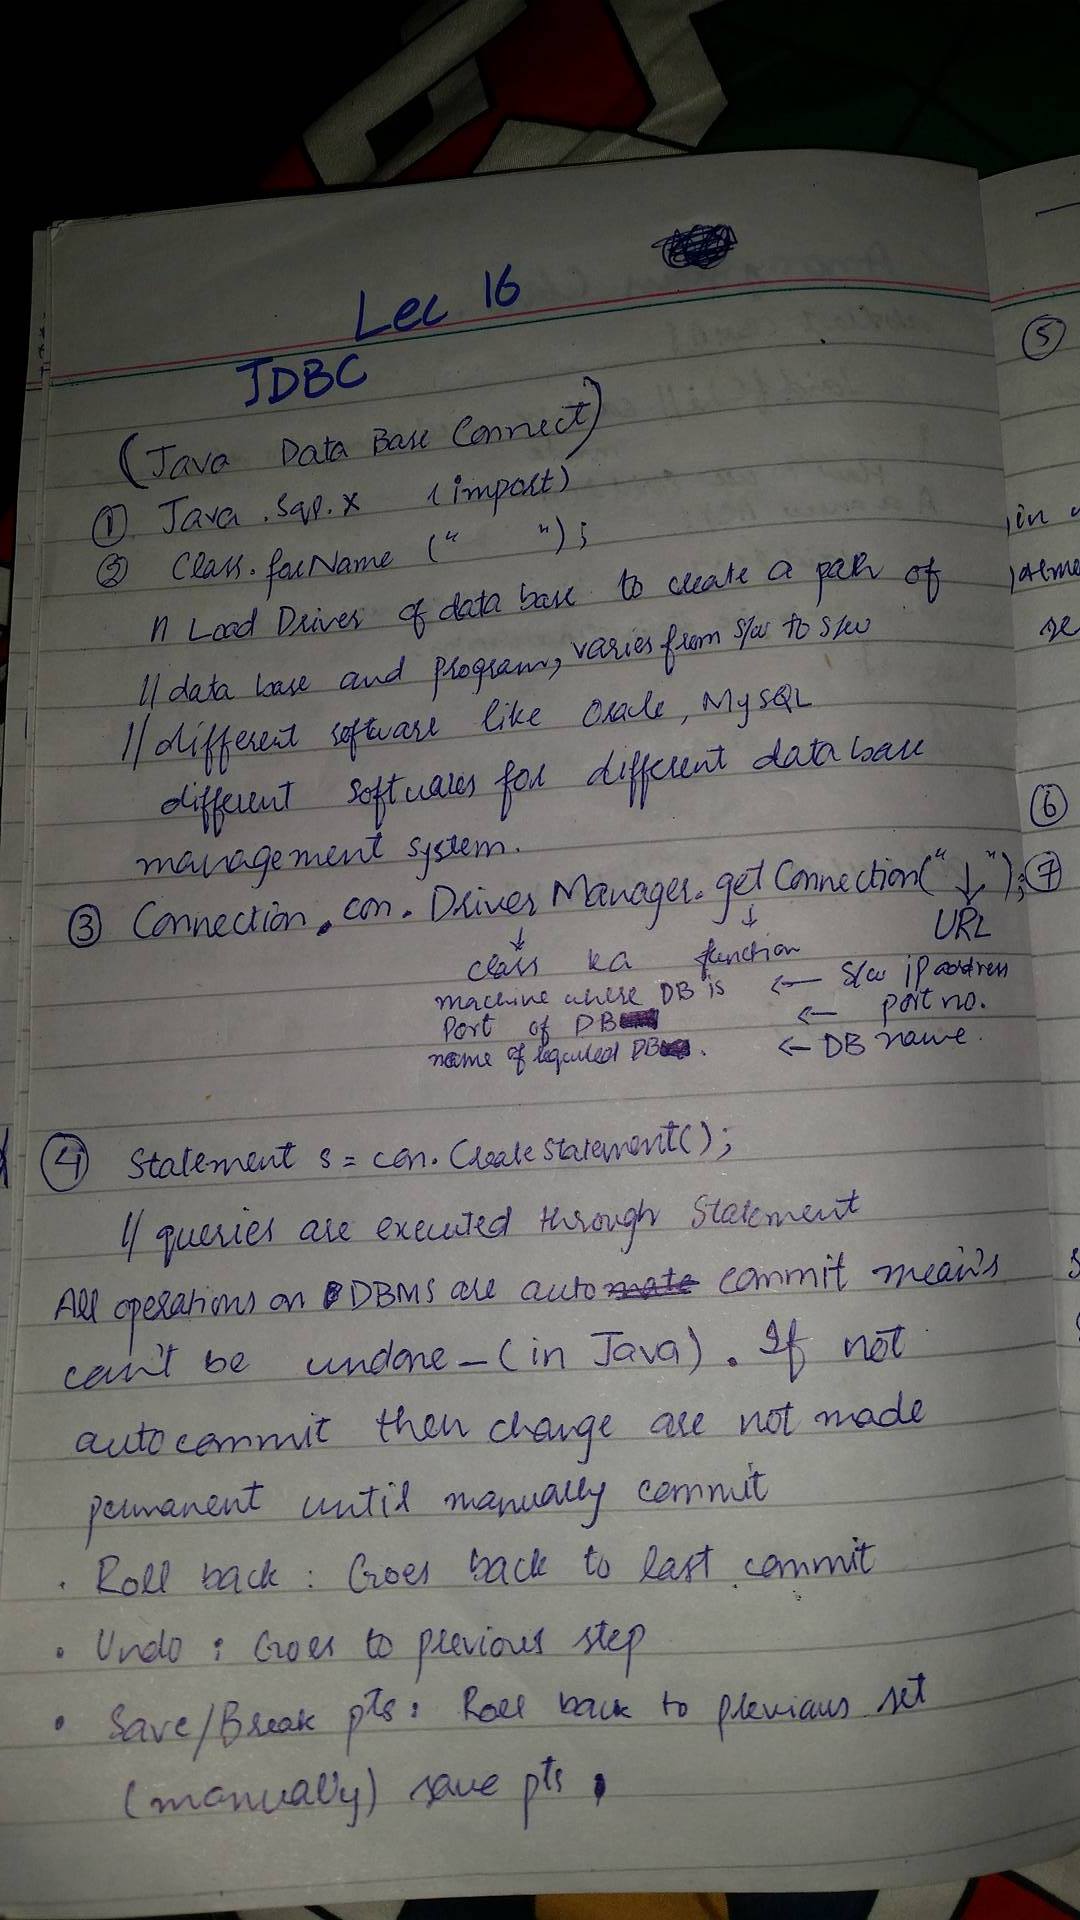 Lec 16
JDBC
(Java Data Base Connect)
① Java.sql.x (import)
② Class.forName (" ");
// Load Driver of data base to create a path of
// data base and program, varies from s/w to s/w
// different software like Oracle, MySQL
different softwares for different data base
management system.
③ Connection con. Driver Manager.get Connection("↓");
↓ ↓ URL
class ka function
machine where DB is ← S/w ip address
Port of DB ← port no.
name of required DB. ← DB name.
④ Statement s = con. Create Statement();
// queries are executed through Statement
All operations on DBMS are auto commit means
can't be undone – (in Java). If not
autocommit then change are not made
permanent until manually commit
• Roll back : Goes back to last commit
• Undo : Goes to previous step
• Save/Break pts : Roll back to previous set
(manually) save pts.
⑤
in
⑥
⑦
se